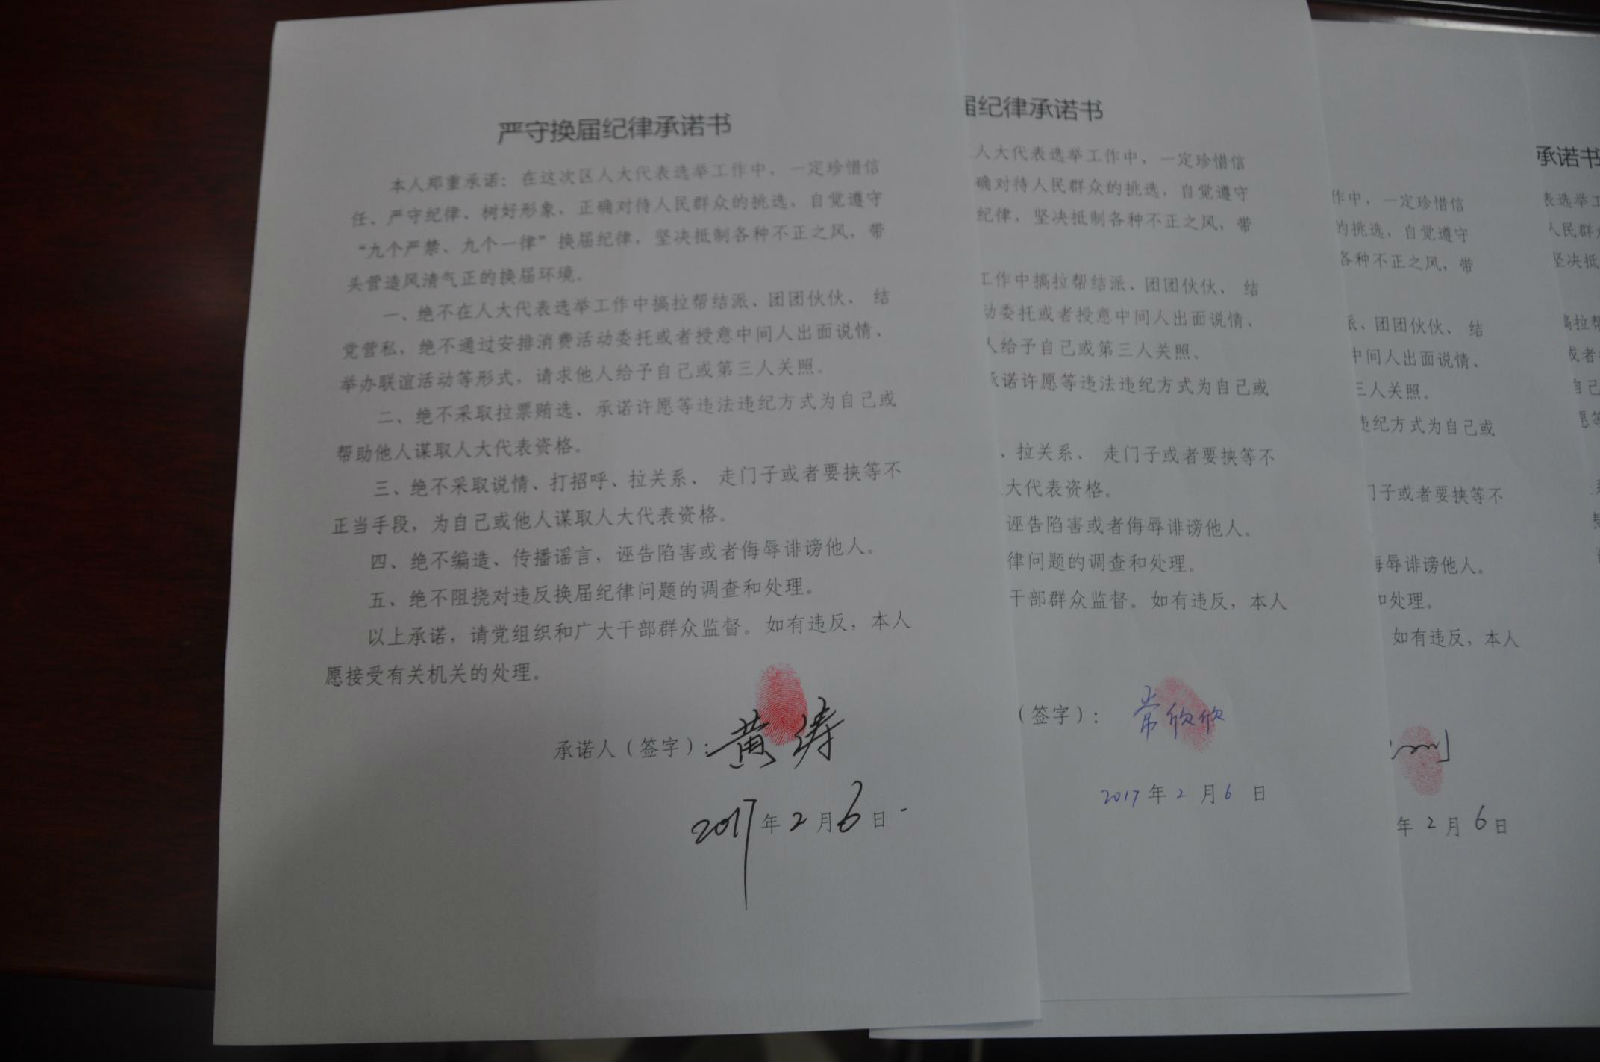 严守换届纪律承诺书
本人郑重承诺：在这次区人大代表选举工作中，一定珍惜信
任、严守纪律、树好形象，正确对待人民群众的挑选，自觉遵守
“九个严禁、九个一律”换届纪律，坚决抵制各种不正之风，带
头营造风清气正的换届环境。
一、绝不在人大代表选举工作中搞拉帮结派、团团伙伙、结
党营私，绝不通过安排消费活动委托或者授意中间人出面说情、
举办联谊活动等形式，请求他人给予自己或第三人关照。
二、绝不采取拉票贿选、承诺许愿等违法违纪方式为自己或
帮助他人谋取人大代表资格。
三、绝不采取说情、打招呼、拉关系、走门子或者要挟等不
正当手段，为自己或他人谋取人大代表资格。
四、绝不编造、传播谣言，诬告陷害或者侮辱诽谤他人。
五、绝不阻挠对违反换届纪律问题的调查和处理。
以上承诺，请党组织和广大干部群众监督。如有违反，本人
愿接受有关机关的处理。
承诺人（签字）：黄涛
2017年2月6日
届纪律承诺书
人大代表选举工作中，一定珍惜信
确对待人民群众的挑选，自觉遵守
纪律，坚决抵制各种不正之风，带
工作中搞拉帮结派、团团伙伙、结
动委托或者授意中间人出面说情、
人给予自己或第三人关照、
承诺许愿等违法违纪方式为自己或
、拉关系、走门子或者要挟等不
大代表资格。
诬告陷害或者侮辱诽谤他人。
律问题的调查和处理。
干部群众监督。如有违反，本人
（签字）：常欣欣
2017年2月6日
作中，一定珍惜信
的挑选，自觉遵守
各种不正之风，带
派、团团伙伙、结
中间人出面说情、
三人关照。
违纪方式为自己或
门子或者要挟等不
侮辱诽谤他人。
和处理。
如有违反，本人
年2月6日
承诺书
表选举工
人民群众
坚决抵
搞拉帮
或者
自己